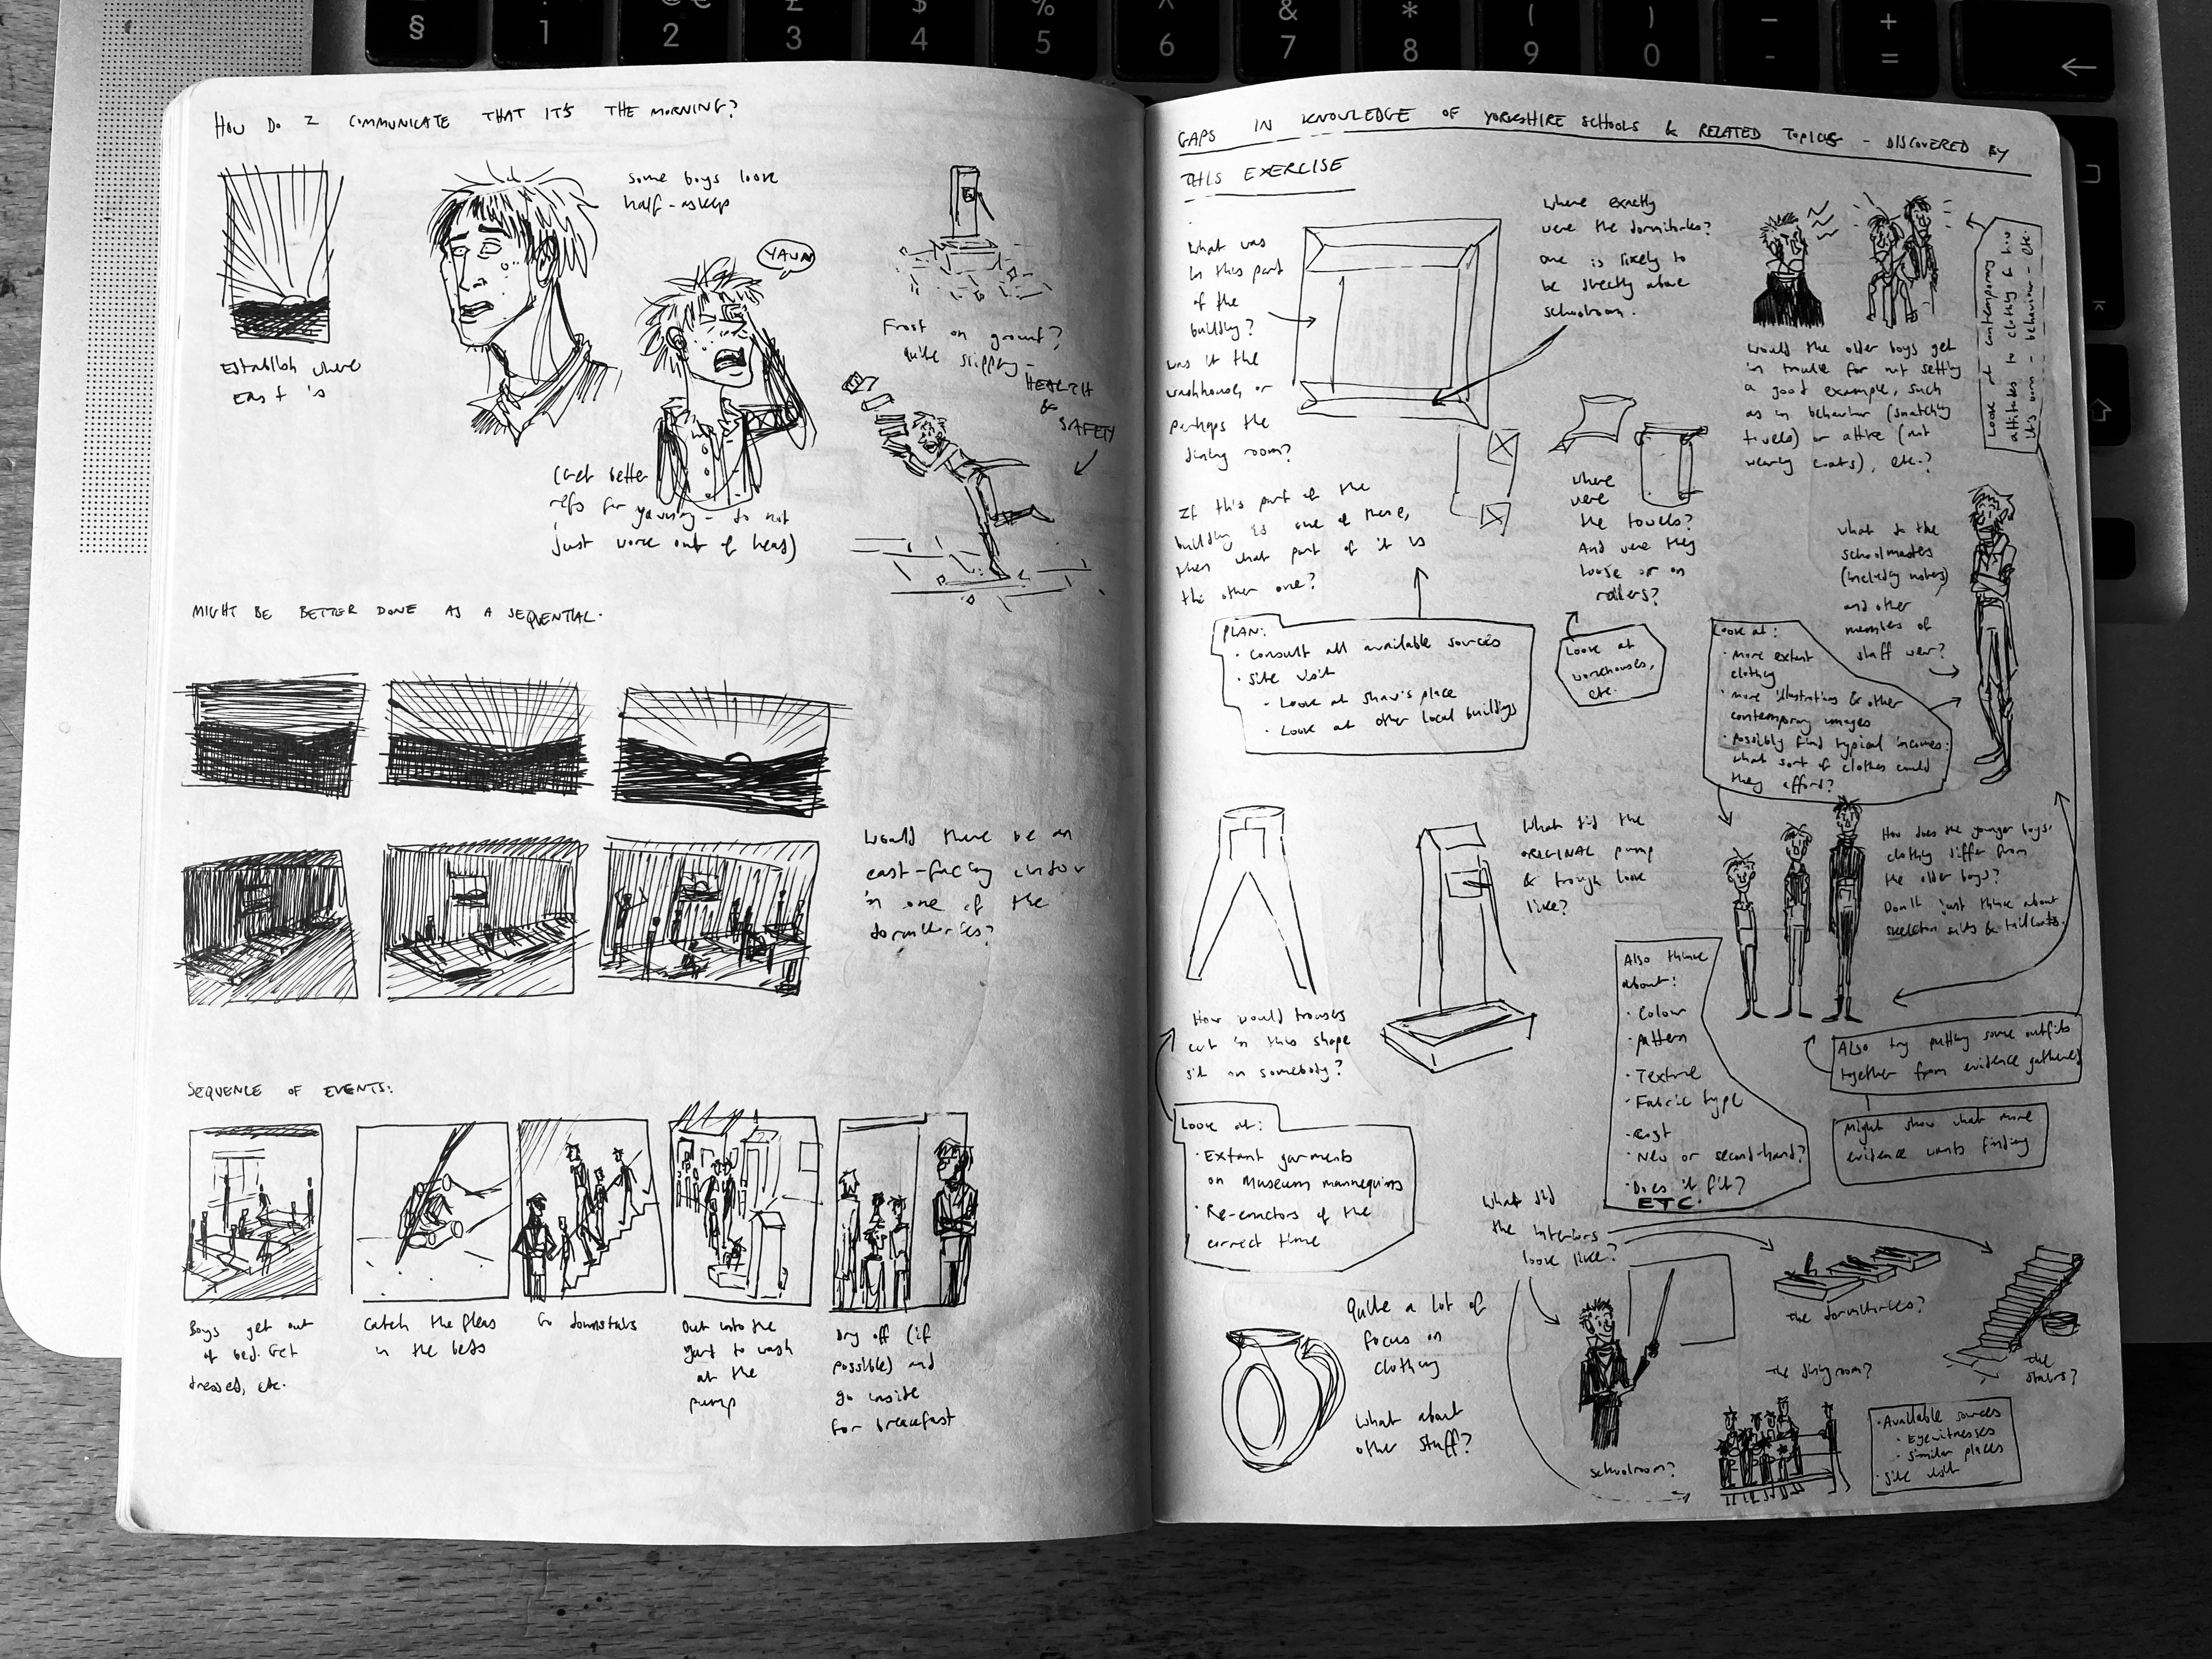 §
1
2
3
4
5
6
7
8
9
0
-
=
$
%
^
&
*
(
)
_
+
←
HOW DO I COMMUNICATE THAT IT'S THE MORNING?
Establish where
East is
some boys look
half-asleep
YAWN
(Get better
refs for yawning - do not
just work out of head)
Frost on ground?
quite slippy -
HEALTH
&
SAFETY
MIGHT BE BETTER DONE AS A SEQUENTIAL.
Would there be an
east-facing window
in one of the
dormitories?
SEQUENCE OF EVENTS:
Boys get out
of bed. Get
dressed, etc.
Catch the fleas
in the beds
Go downstairs
Out into the
yard to wash
at the
pump
Dry off (if
possible) and
go inside
for breakfast
GAPS IN KNOWLEDGE OF YORKSHIRE SCHOOLS & RELATED TOPICS - DISCOVERED BY
THIS EXERCISE
What was
in this part
of the
building?
was it the
washhouse, or
perhaps the
dining room?
If this part of the
building is one of these,
then what part of it is
the other one?
PLAN:
• Consult all available sources
• Site visit
- Look at Shaw's place
- Look at other local buildings
Where exactly
were the dormitories?
One is likely to
be directly above
schoolroom.
where
were
the towels?
And were they
loose or on
rollers?
Look at
workhouses,
etc.
Would the older boys get
in trouble for not setting
a good example, such
as in behaviour (snatching
towels) or attire (not
wearing coats), etc.?
Look at contemporary
attitudes to clothing & how
it's worn - behaviour - etc.
What do the
schoolmasters
(including ushers)
and other
members of
staff wear?
Look at:
• More extant
clothing
• more illustrations & other
contemporary images
• possibly find typical incomes:
what sort of clothes could
they afford?
How would trousers
cut in this shape
sit on somebody?
Look at:
• Extant garments
on Museum mannequins
• Re-enactors of the
correct time
What did the
ORIGINAL pump
& trough look
like?
How does the younger boys'
clothing differ from
the older boys?
Don't just think about
skeleton suits & tailcoats.
Also think
about:
• Colour
• Pattern
• Texture
• Fabric type
• Cost
• New or second-hand?
• Does it fit?
ETC.
Also try putting some outfits
together from evidence gathered
Might show what more
evidence wants finding
Quite a lot of
focus on
clothing
What about
other stuff?
What did
the interiors
look like?
schoolroom?
The dormitories?
The dining room?
The
stairs?
• Available sources
• Eyewitnesses
• Similar places
• Site visit